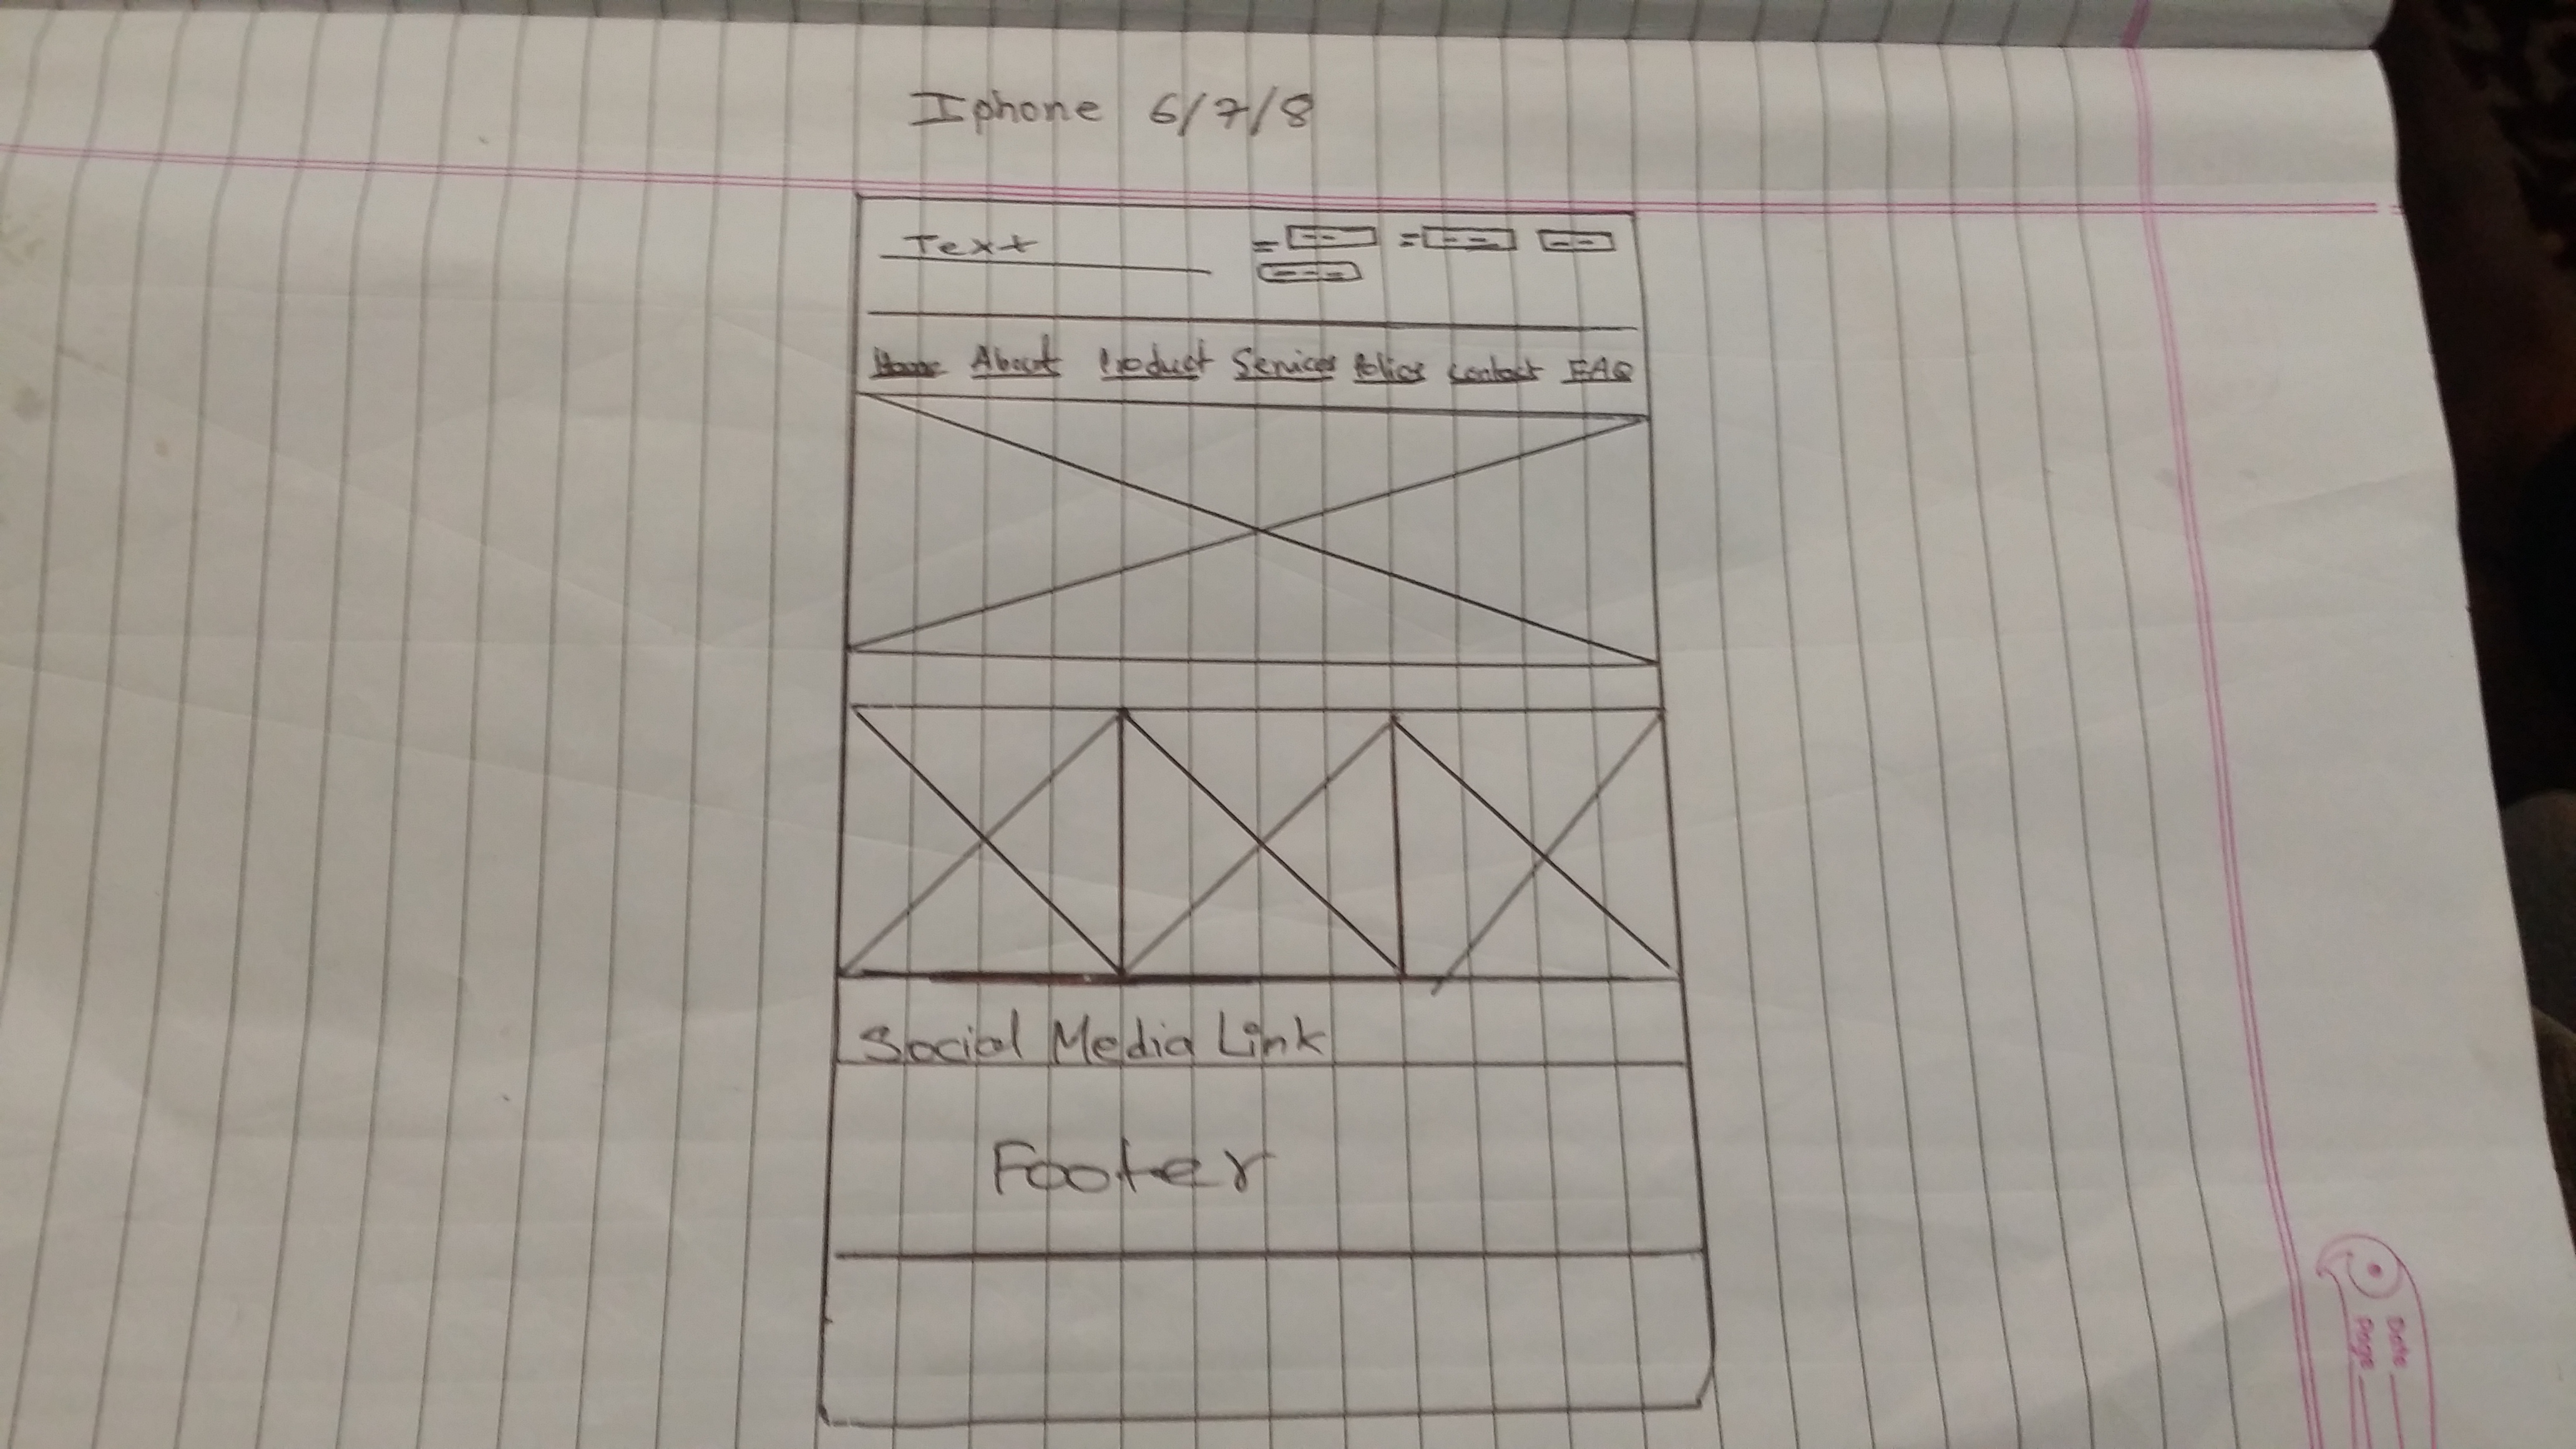 Iphone 6/7/8
Text
Home About Product Services Polices Contact FAQ
Social Media Link
Footer
Date
Page